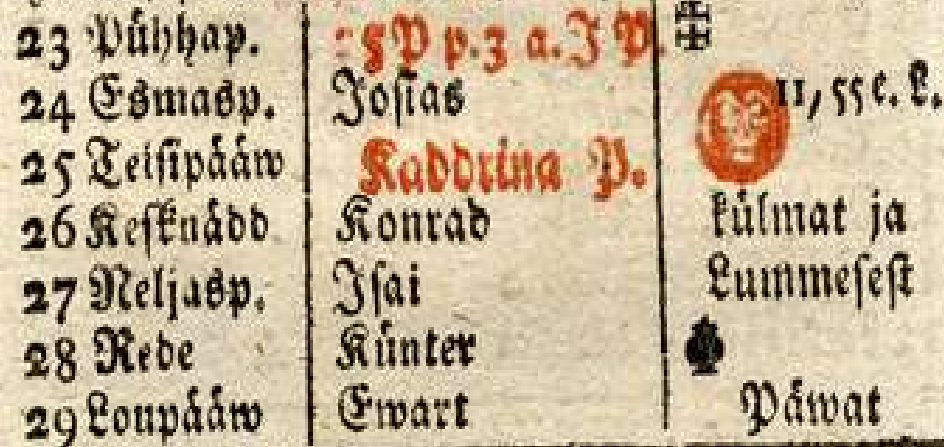 23 Pühhap. P p. 3 a. J P.
24 Esmasp. Josias 11, 55 e. L.
25 Teisipääw Kaddrina P.
26 Kesknädd Konrad külmat ja
27 Neljasp. Isai Lummesest
28 Rede Künter
29 Loupääw Ewart Päwat